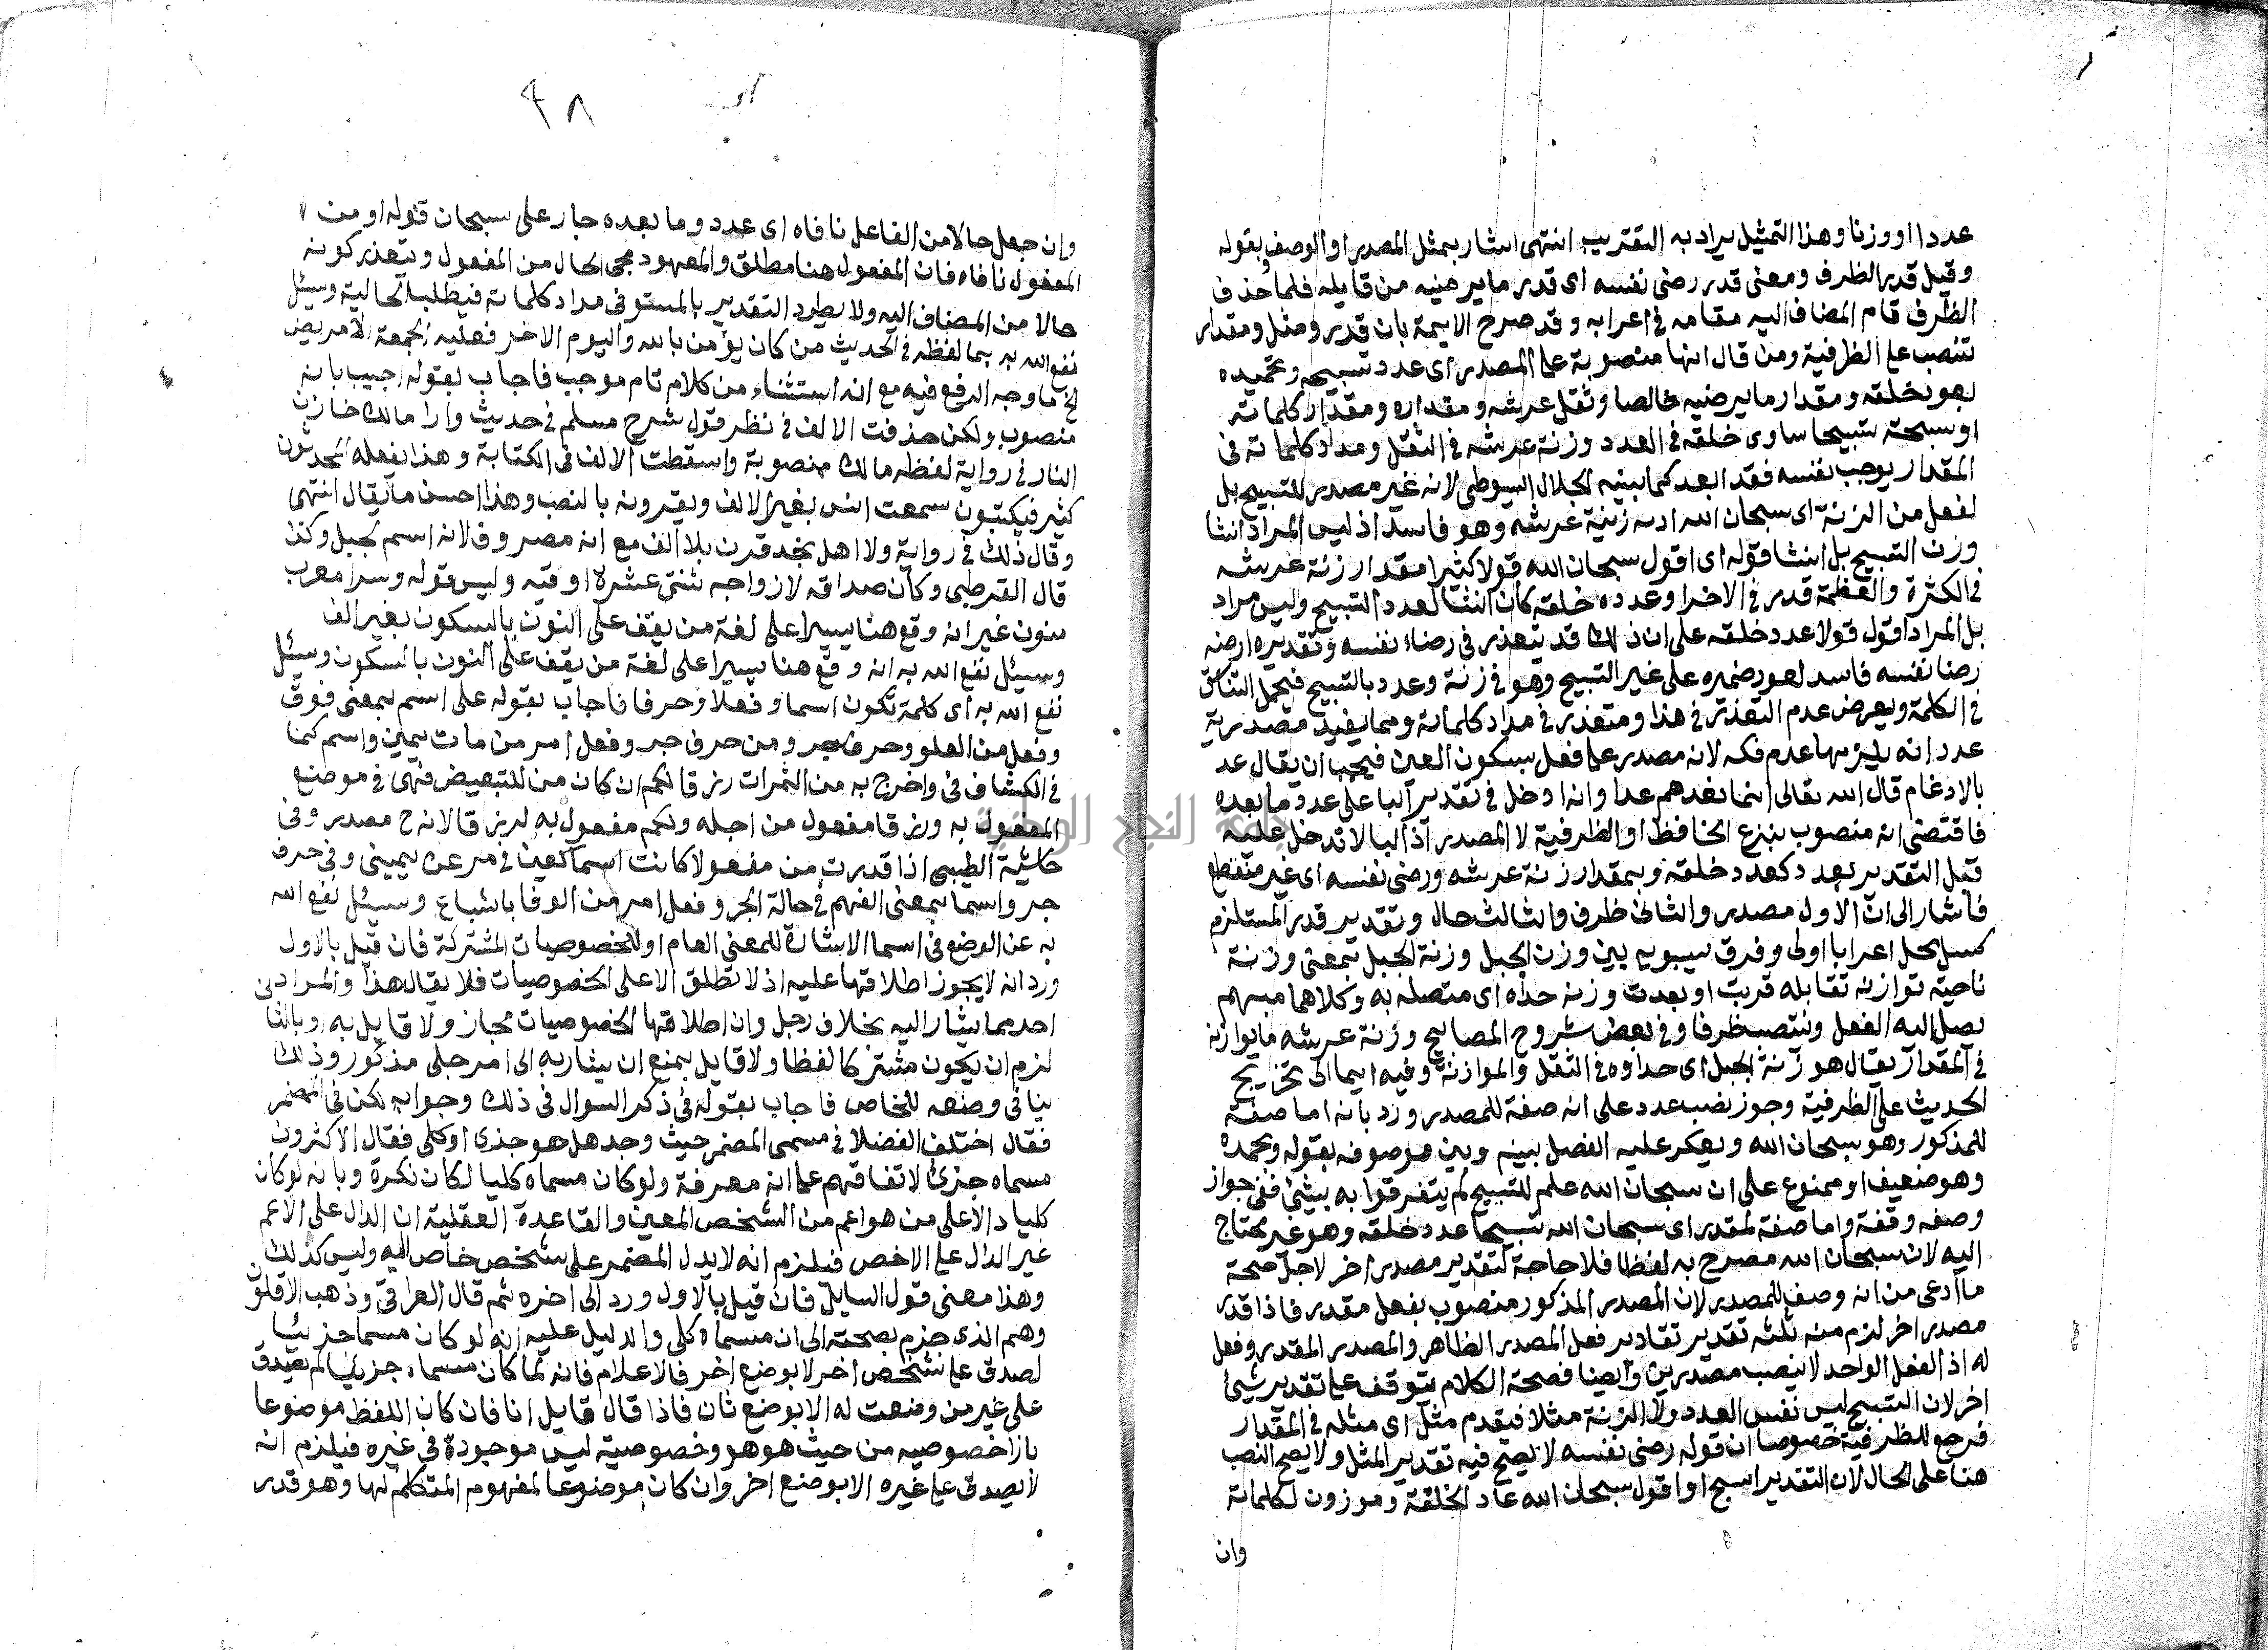 عددا او وزنا وهذا التمثيل يراد به التقريب انتهى اشار بمثل المصدر او الوصف بقوله
وقيل قدر الظرف ومعنى قدر رضى نفسه اى قدر ما يرضيه من قايله فلما حذف
الظرف قام المضاف اليه مقامه فى اعرابه وقد صرح الايمة بان قدر ومثل ومقدار
تنصب على الظرفية ومن قال انها منصوبة على المصدر اى عدد تسبيحه وتحميده
بعدد خلقه ومقدار ما يرضيه خالصا وثقل عرشه ومقداره ومقدار كلماته
او سبحته تسبيحا ساوى خلقه فى العدد وزنة عرشه فى الثقل ومداد كلماته فى
المقدار يوجب نفسه فقد ابعد كما بينه الجلال السيوطى لانه غير مصدر للتسبيح بل
لفعل من الزنة اى سبحان الله ازنه زينة عرشه وهو فاسد اذ ليس المراد انشا
وزن التسبيح بل انشا قوله اى اقول سبحان الله قولا كثيرا مقدار زنة عرشه
فى الكثرة والعظمة قدر فى الاخر اوعدده خلقه كان انشا لعدد التسبيح وليس مراد
بل المراد اقول قولا عدد خلقه على ان ذلك قد يتعذر فى رضاء نفسه وتقديره ارضه
رضا نفسه فاسد لعود ضميره على غير التسبيح وهو فى زنة وعدد بالتسبيح فيحمل التناكق
فى الكلمة ويعرض عدم التعذر فى هذا ومتعذر فى مداد كلماته ومما يفيد مصدرية
عدد انه يلزمها عدم فكه لانه مصدر على فعل بسكون العين فيجب ان يقال عد
بالادغام قال الله تعالى انما نعد لهم عدا وانه ادخل فى تقدير البا على عدد وما بعده
فاقتضى انه منصوب بنزع الخافظ او الظرفية لا المصدر اذ البا لا تدخل عليه
قبل التقدير بعدد كعدد خلقه وبمقدار زنة عرشه ورضى نفسه اى غير منقطع
فاشار الى ان الاول مصدر والثانى ظرف والثالث حال وتقدير قدر المستلزم
كسل بحل اعرابا اولى وفرق سيبويه بين وزن الجبل وزنة الجبل بمعنى وزنة
ناحية توازنه تقابله قربت او بعدت وزنه حذاه اى متصله به وكلاهما مبهم
يصل اليه الفعل وينتصب ظرفا وفى بعض شروح المصابيح وزنة عرشه ما يوازنه
فى المقدار يقال هو زنة الجبل اى حذاوه فى الثقل والموازنة وفيه ايما الى تخريج
الحديث على الظرفية وجوز نصب عدد على انه صفة للمصدر ورد بانه اما صفة
للمذكور وهو سبحان الله ويعكر عليه الفصل بينه وبين موصوفه بقوله وبحمده
وهو ضعيف او ممنوع على ان سبحان الله علم للتسبيح لم يتفرقوا به بشئ ففى جواز
وصفه وقفة واما صفة لمقدر اى سبحان الله تسبيحا عدد خلقه وهو غير محتاج
اليه لان سبحان الله مصرح به لفظا فلا حاجة لتقدير مصدر اخر لاجل صحة
ما ادعى من انه وصف للمصدر لان المصدر المذكور منصوب بفعل مقدر فاذا قدر
مصدر اخر لزم منه ثلثه تقدير تقادير فعل المصدر الظاهر والمصدر المقدر وفعل
له اذ الفعل الواحد لا ينصب مصدرين وايضا فصحة الكلام يتوقف على تقدير شئ
اخر لان التسبيح ليس نفس العدد ولا الزنة مثلا فيقدم مثل اى مثله فى المقدار
فرجع للظرفية خصوصا ان قوله رضى نفسه لا يصح فيه تقدير المثل ولا يصح النصب
هنا على الحال لان التقدير اسبح او اقول سبحان الله عاد لخلقه وموزون لكلماته
وان
٤٨
وان جعل حالا من الفاعل نافاه اى عدد وما بعده جار على سبحان قوله او من
المفعول نافاه فان المفعول هنا مطلق والمعهود مجى الحال من المفعول ويتعذر كونه
حالا من المضاف اليه ولا يطرد التقدير بالمستوى فى مداد كلماته فيطلب الحالية وسيئل
نفع الله به بما لفظه فى الحديث من كان يؤمن بالله واليوم الاخر فعليه الجمعة الا مريض
الخ ما وجه الرفع فيه مع انه استثناء من كلام تام موجب فاجاب بقوله اجيب بانه
منصوب ولكن حذفت الالف فى نظر قول شرح مسلم فى حديث وارا مالك خازن
النار فى رواية لفظه مالك منصوبة واسقطت الالف فى الكتابة وهذا يفعله المحدثون
كثيرا فيكتبون سمعت انس بغير الالف ويقرونه بالنصب وهذا احسن ما يقال انتهى
وقال ذلك فى رواية ولا اهل نجد قرن بلا الف مع انه مصروف لانه اسم لجبل وكذا
قال القرطبى وكان صداقه لازواجه ثنتى عشرة اوقيه وليس قوله وسرا معرب
منون غير انه وقع هنا يسيرا على لغة من يقف على النون بالسكون بغير الف
وسيئل نفع الله به انه وقع هنا يسيرا على لغة من يقف على النون بالسكون وسيئل
نفع الله به اى كلمة تكون اسما وفعلا وحرفا فاجاب بقوله على اسم بمعنى فوق
وفعل من العلو وحرف جر ومن حرف جر وفعل امر من مات يمين واسم كما
فى الكشاف فى واخرج به من الثمرات رزقا لكم ان كان من للتبعيض فهى فى موضع
المفعول به ورزقا مفعول من اجله ولكم مفعول به لرزقا لانه ح مصدر وفى
حاشية الطيبى اذا قدرت من مفعولا كانت اسما كعن فى مر عن يمينى وفى حرف
جر واسما بمعنى الفهم فى حالة الجر وفعل امر من الوفا باشباع وسيئل نفع الله
به عن الوضع فى اسما الاشارة للمعنى العام او للخصوصيات المشتركة فان قيل بالاول
ورد انه لا يجوز اطلاقها عليه اذ لا تطلق الا على الخصوصيات فلا يقال هذا والمراد
احد مما يشار اليه بخلاف رجل وان اطلاقها الخصوصيات مجاز ولا قايل به او بالثا
لزم ان يكون مشتركا لفظا ولا قايل بمنع ان يشار به الى امر جلى مذكور وذلك
ينافى وضعه للخاص فاجاب بقوله فى ذكر السوال فى ذلك وجوابه لكن فى المضمر
فقال اختلف الفضلا فى مسمى المضمر حيث وجد هل هو جذى او كلى فقال الاكثرون
مسماه جزئ لاتفاقهم على انه معرفة ولو كان مسماه كليا لكان نكرة وبانه لو كان
كليا د الا على من هو اعم من الشخص المعين والقاعدة العقلية ان الدال على الاعم
غير الدال على الاخص فيلزم انه لا يدل المضمر على شخص خاص اليه وليس كذلك
وهذا معنى قول السايل فان قيل بالاول ورد الى اخره ثم قال العراقى وذهب الاقلون
وهم الذى جزم بصحته الى ان مسماه كلى والدليل عليه انه لو كان مسما جزئيا
لصدق على شخص اخر لا بوضع اخر فالاعلام فانه لما كان مسماه جزئيا لم يصدق
على غير من وضعت له الا بوضع ثان فاذا قال قايل انا فان كان اللفظ موضوعا
بازا خصوصيه من حيث هو هو وخصوصية ليس موجودة فى غيره فيلزم انه
لا يصدق على غيره الا بوضع اخر وان كان موضوعا لمفهوم المتكلم لها وهو قدر
جامعة النجاح الوطنية